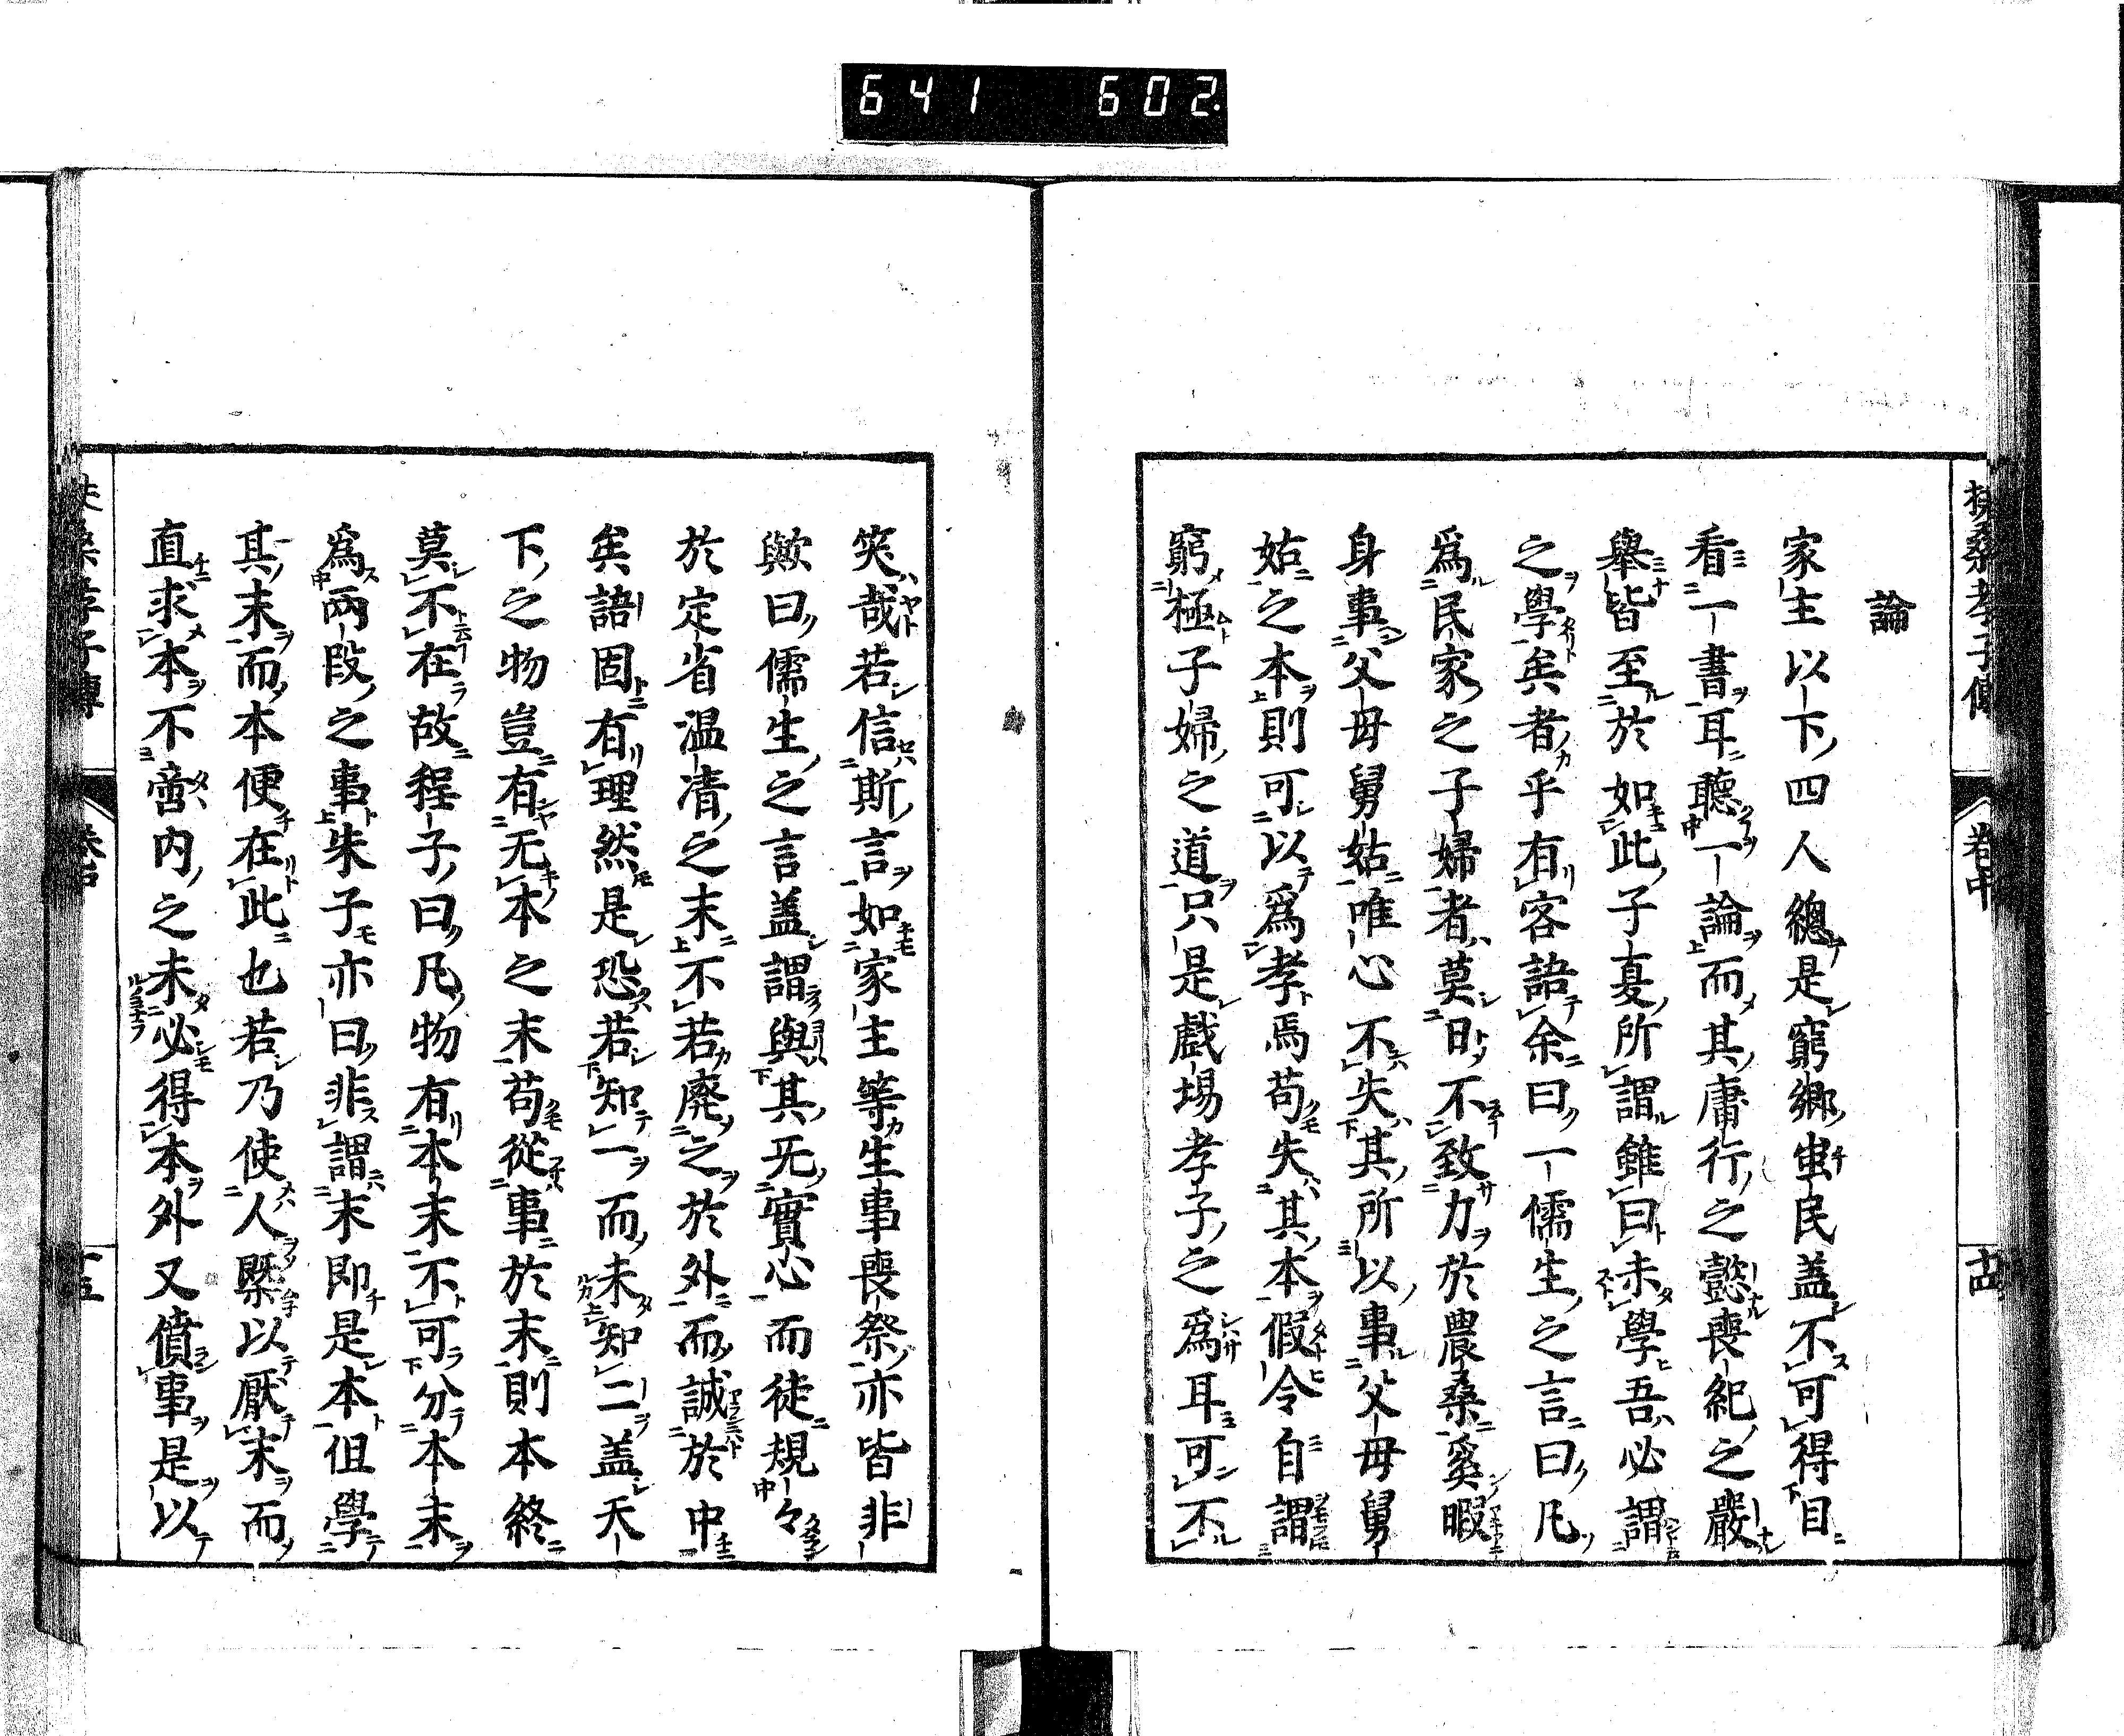 641 602
扶桑孝子傳 卷中 十四
論
家主以下四人總是窮鄉蚩民盖不可得目
看一書耳聽一論而其庸行之懿喪紀之嚴
舉皆至於如此子夏所謂雖曰未學吾必謂
之學矣者乎有客語余曰一儒生之言曰凡
爲民家之子婦者莫曰不致力於農桑奚暇
身事父母舅姑唯心不失其所以事父母舅
姑之本則可以爲孝焉苟失其本假令自謂
窮極子婦之道只是戲場孝子之爲耳可不
笑哉若信斯言如家主等生事喪祭亦皆非
歟曰儒生之言盖謂與其无實心而徒規々
於定省温凊之末不若廢之於外而誠於中
矣語固有理然是恐若知一而未知二盖天
下之物豈有无本之末苟從事於末則本終
莫不在故程子曰凡物有本末不可分本末
爲兩段之事朱子亦曰非謂末即是本但學
其末而本便在此也若乃使人槩以厭末而
直求本不啻内之未必得本外又僨事是以
扶桑孝子傳 卷中 十五